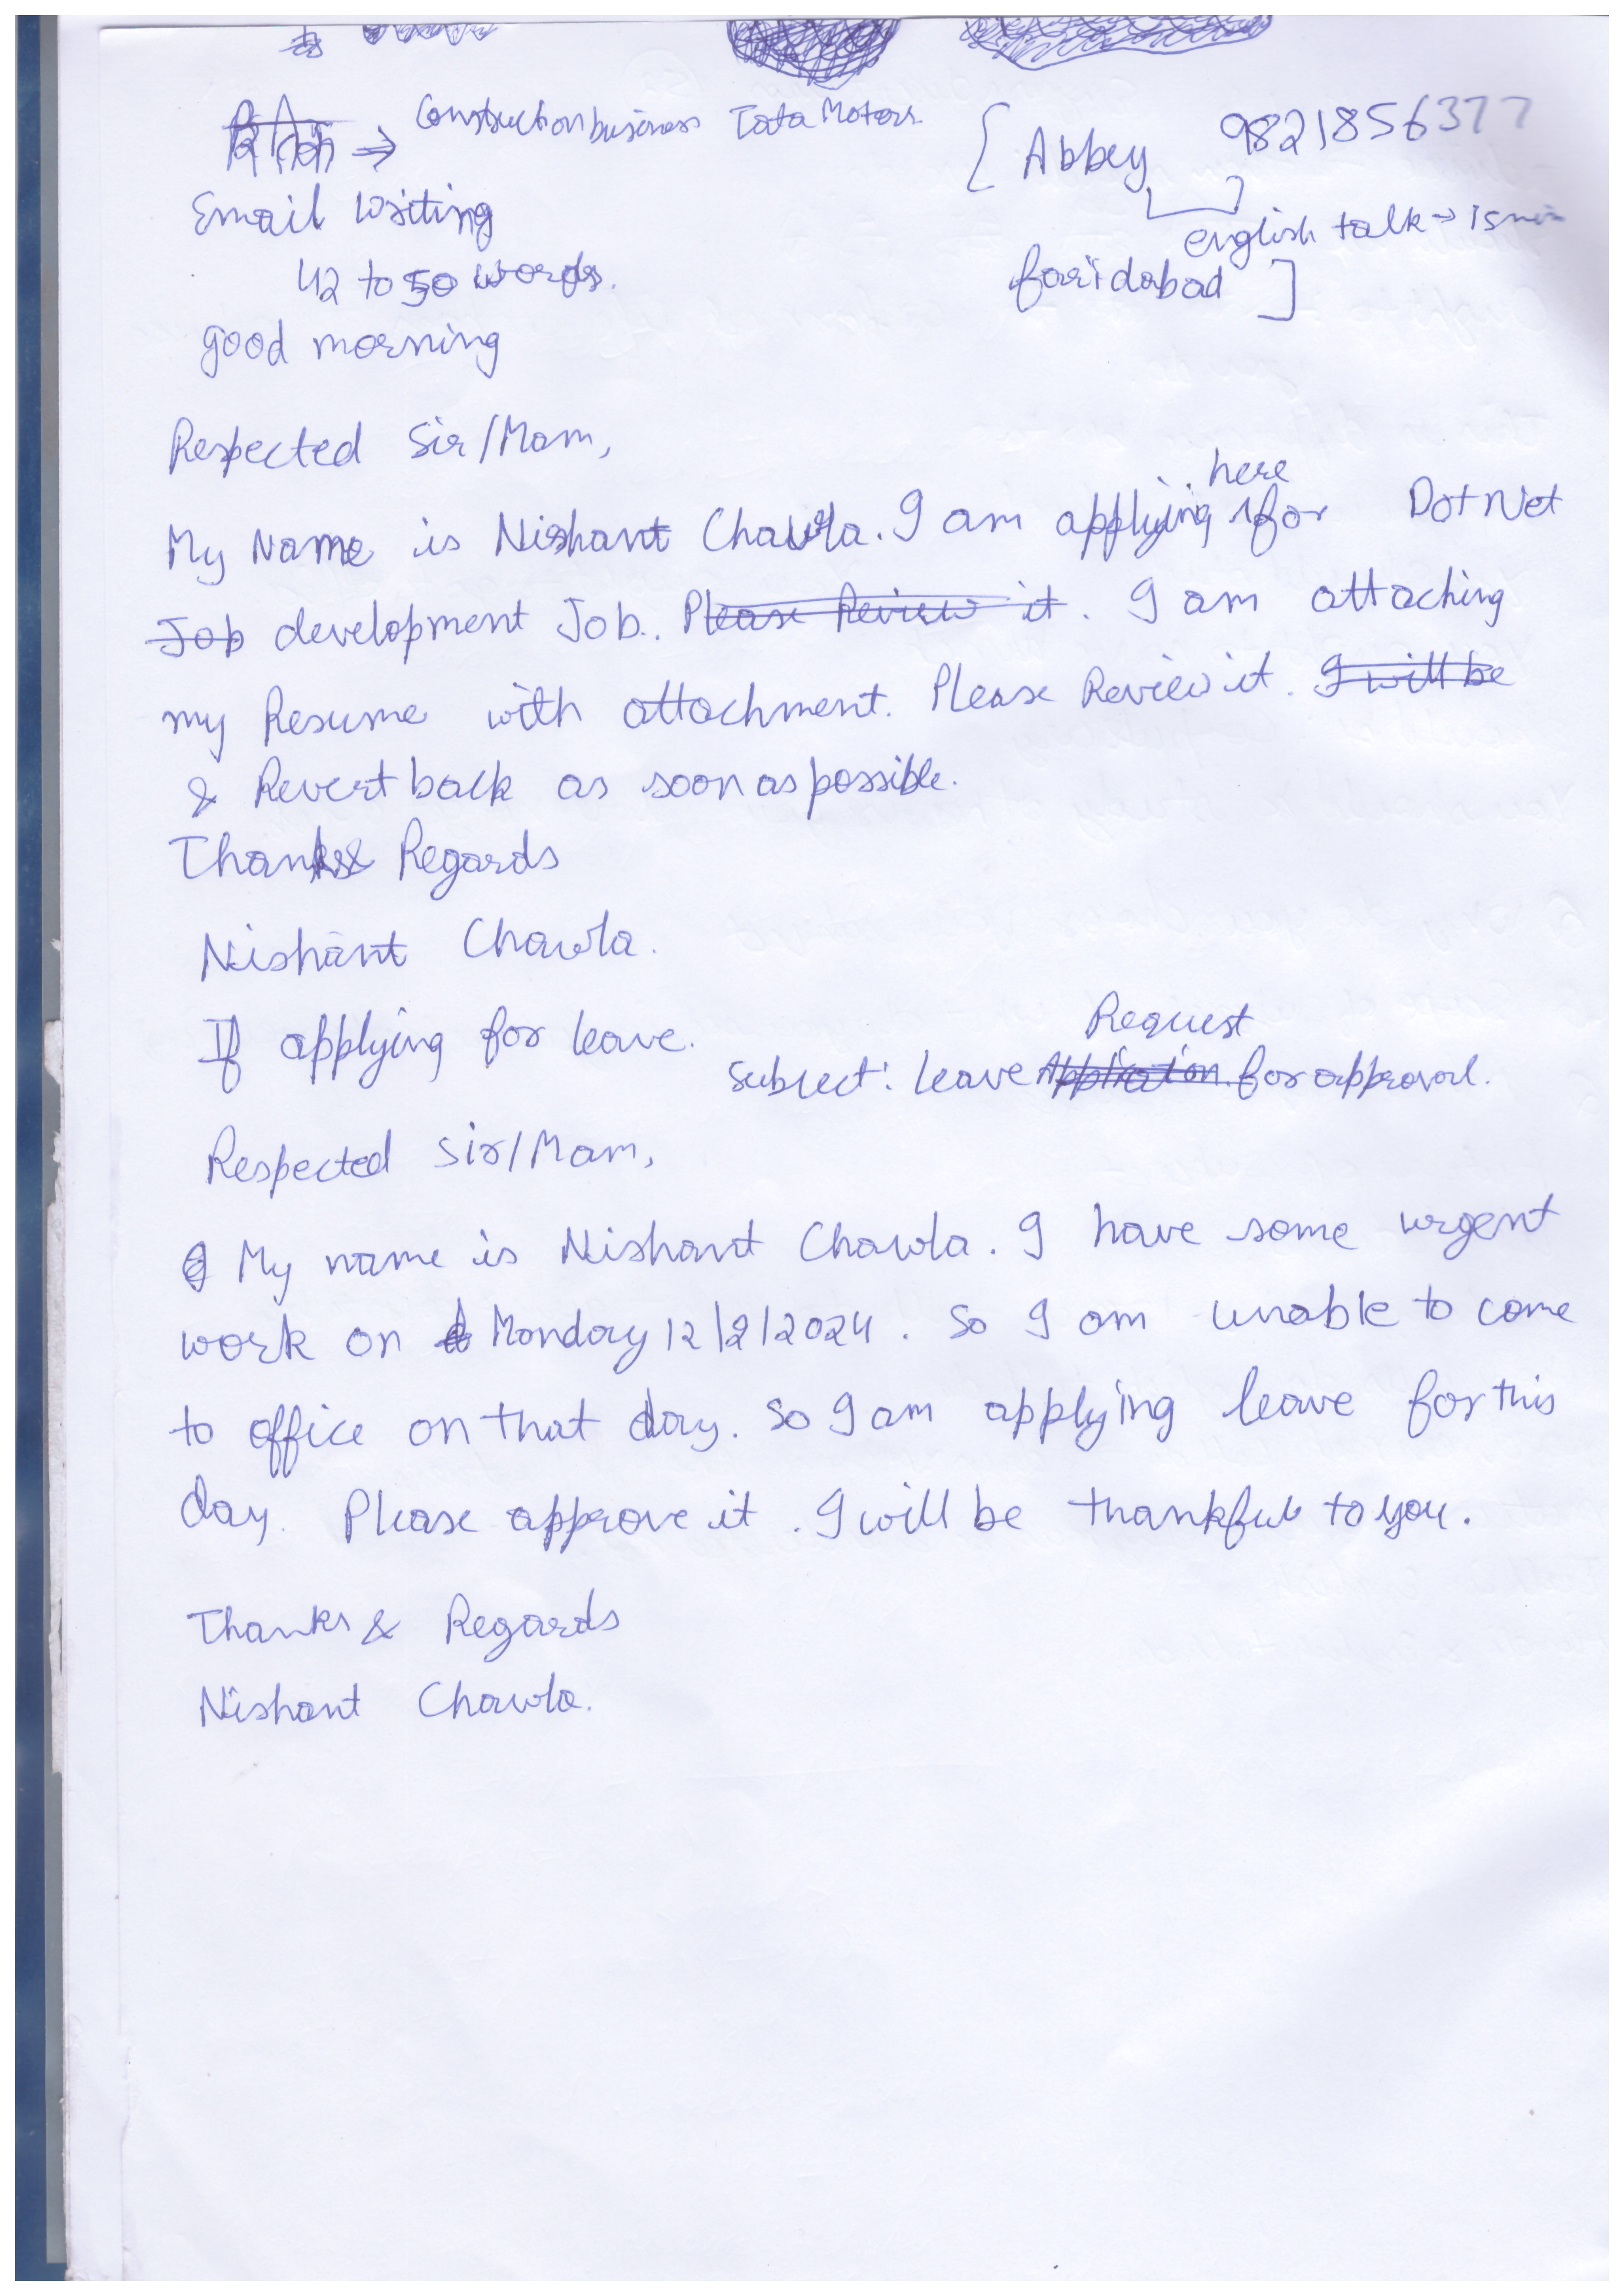 Construction business Tata Motors.
[ Abbey 9821856377
english talk → 15 min
faridabad ]
Email Writing
42 to 50 words.
good morning
Respected Sir/Mam,
My Name is Nishant Chawla. I am applying here for DotNet
Job development Job. Please Review it. I am attaching
my Resume with attachment. Please Review it. I will be
& Revert back as soon as possible.
Thanks & Regards
Nishant Chawla.
If applying for leave.
Subject: leave Application Request for approval.
Respected Sir/Mam,
My name is Nishant Chawla. I have some urgent
work on Monday 12/2/2024. So I am unable to come
to office on that day. So I am applying leave for this
day. Please approve it. I will be thankful to you.
Thanks & Regards
Nishant Chawla.